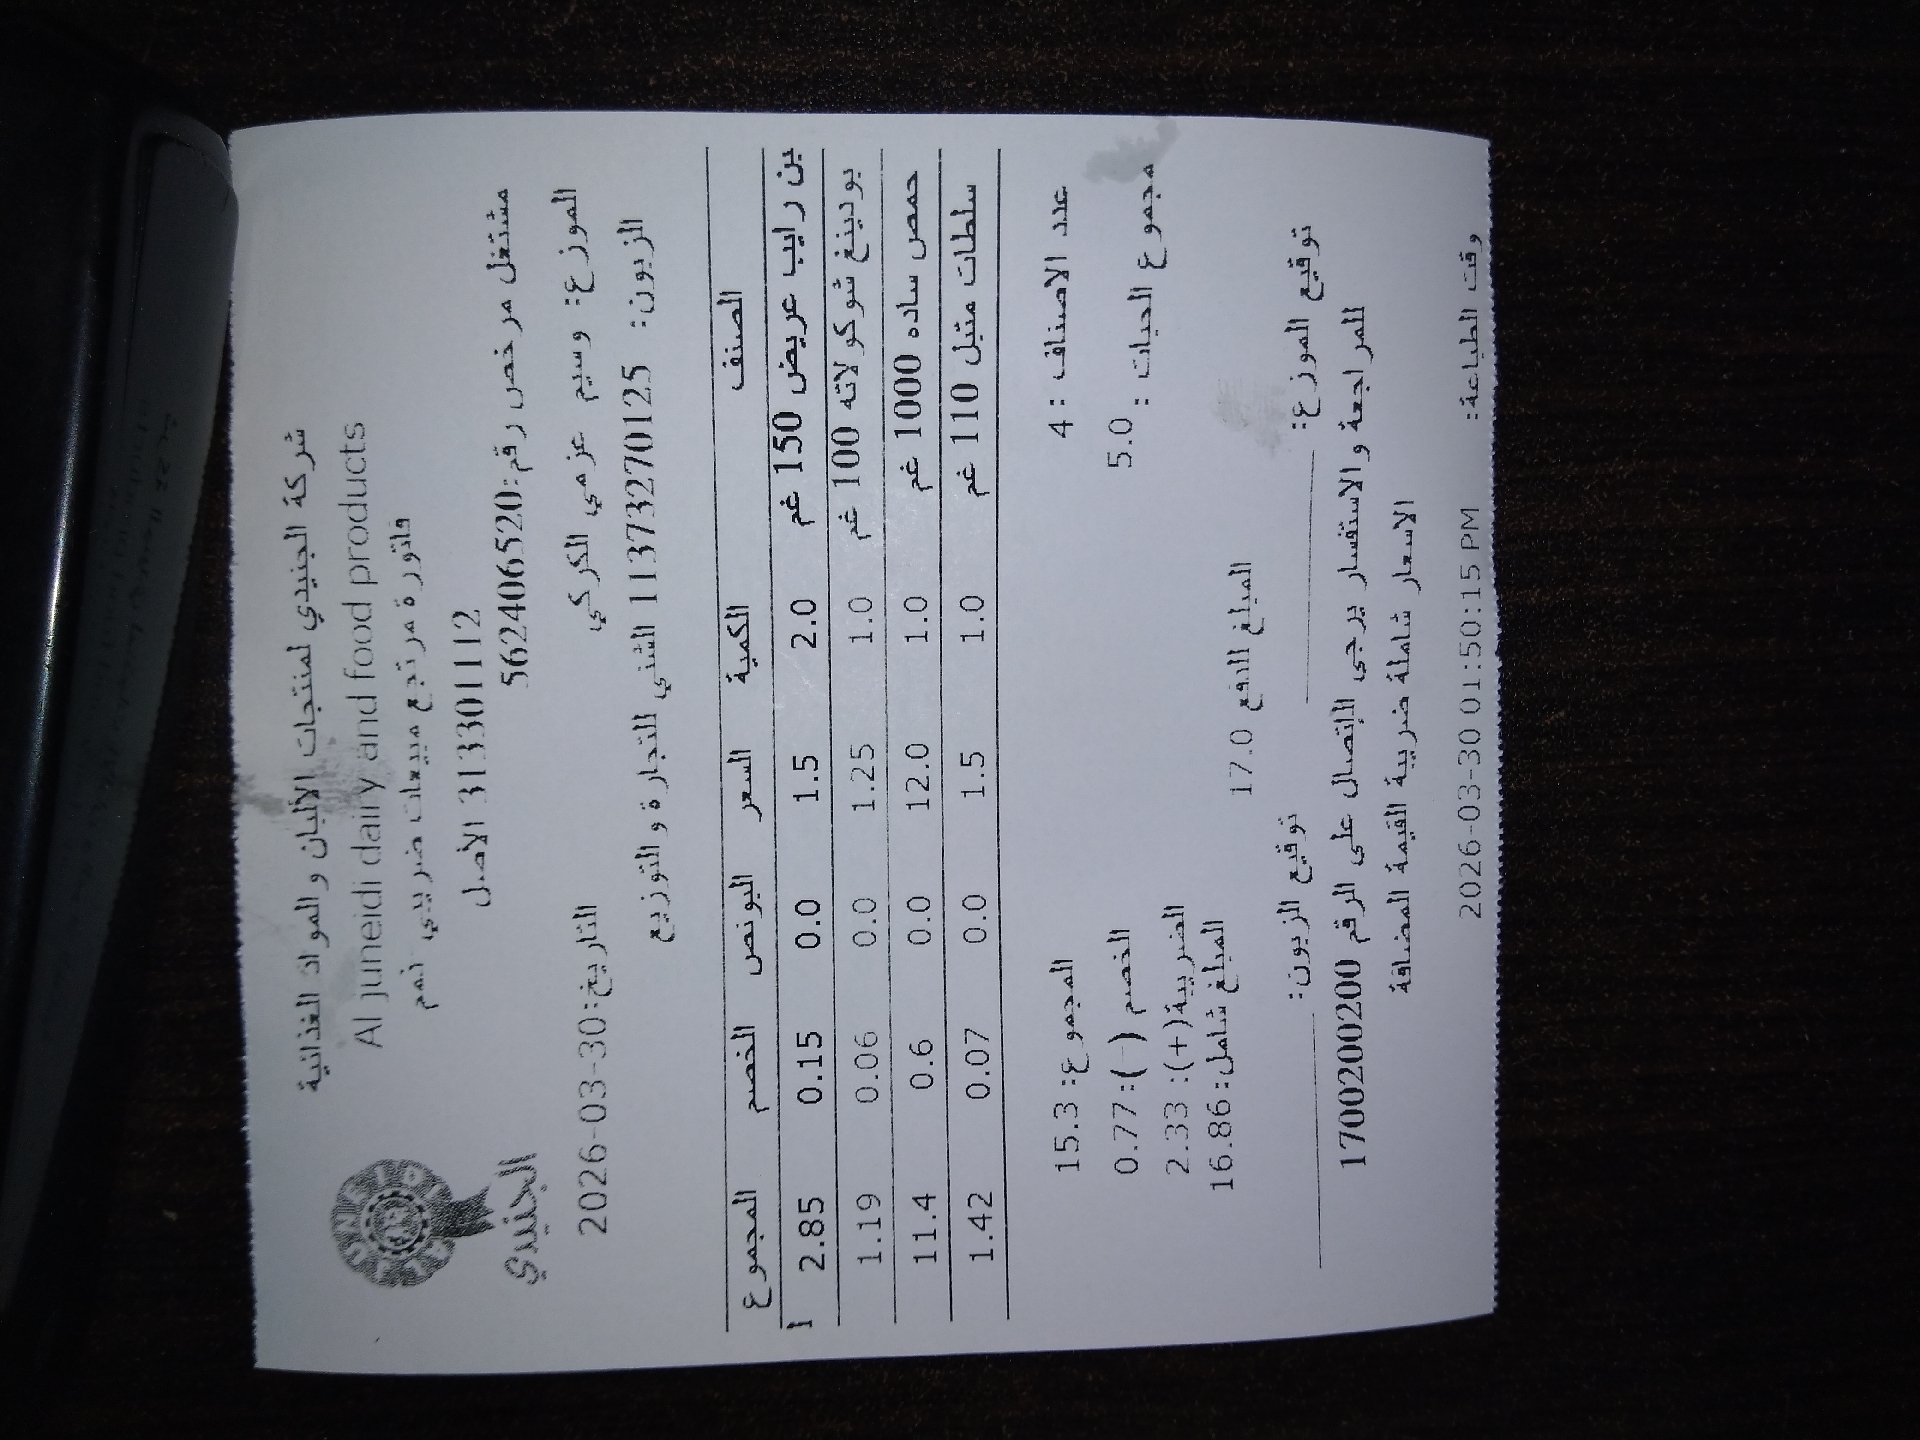 شركة الجنيدي لمنتجات الألبان والمواد الغذائية
Al juneidi dairy and food products
فاتورة مرتجع مبيعات ضريبي
313301112 الأصل
مشتغل مرخص رقم:562406520
الجنيدي
الموزع: وسيم عزمي الكركي
التاريخ:2026-03-30
الزبون: 11373270125 الشني للتجارة والتوزيع
الصنف الكمية السعر البونص الخصم المجموع
بن رايب عريض 150 غم 2.0 1.5 0.0 0.15 2.85
بودينغ شوكولاته 100 غم 1.0 1.25 0.0 0.06 1.19
حمص ساده 1000 غم 1.0 12.0 0.0 0.6 11.4
سلطات متبل 110 غم 1.0 1.5 0.0 0.07 1.42
عدد الاصناف : 4
المجموع: 15.3
مجموع الحبات : 5.0
الخصم (-): 0.77
الضريبة(+): 2.33
المبلغ شامل: 16.86
المبلغ للدفع 17.0
توقيع الموزع: توقيع الزبون:
للمراجعة والاستفسار يرجى الإتصال على الرقم 1700200200
الاسعار شاملة ضريبة القيمة المضافة
وقت الطباعة: 2026-03-30 01:50:15 PM